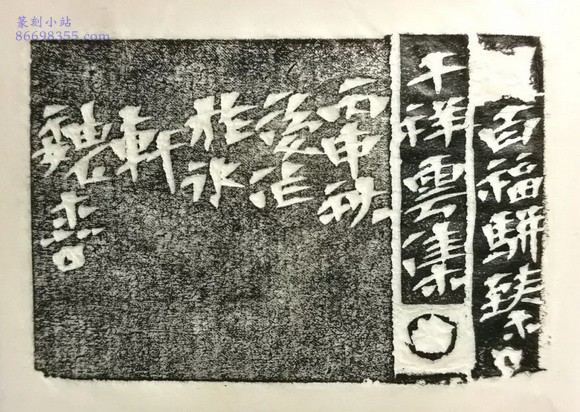 篆刻小站
86698355.com
百福駢臻
千祥雲集
丙申秋
後
於
軒
魏